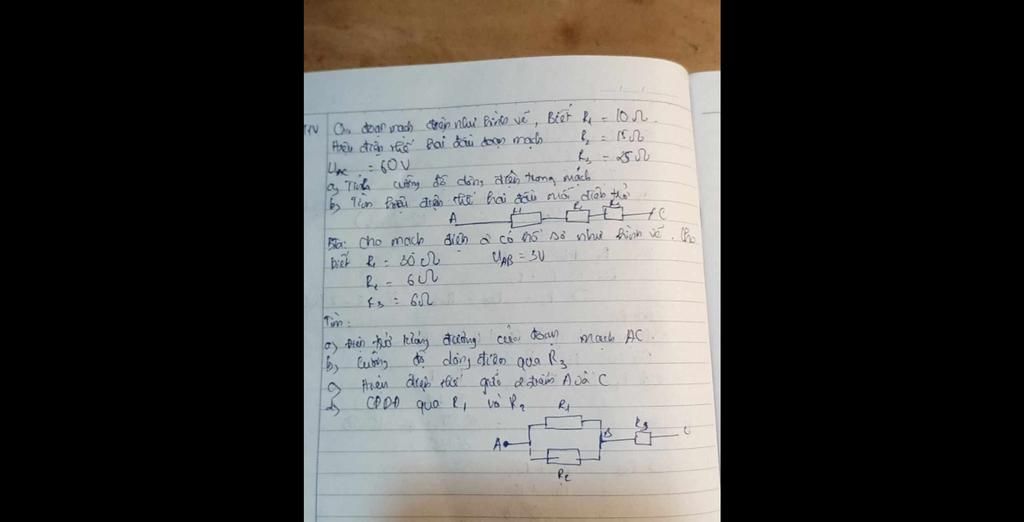 Cho đoạn mạch điện như hình vẽ, Biết R₁ = 10Ω.
Hiệu điện thế hai đầu đoạn mạch R₂ = 15Ω
U_AC = 60V R₃ = 25Ω
a) Tính cường độ dòng điện trong mạch
b) Tìm hiệu điện thế hai đầu mỗi điện trở
A R₁ C
Cho mạch điện có sơ như hình vẽ. Cho
biết R₁ = 30Ω U_AB = 3V
R₂ = 6Ω
R₃ = 6Ω
Tìm:
a) Điện trở tương đương của đoạn mạch AC.
b) Cường độ dòng điện qua R₃
c) Hiệu điện thế giữa 2 điểm A và C
d) CĐDĐ qua R₁ và R₂
R₁
A B R₃ C
R₂